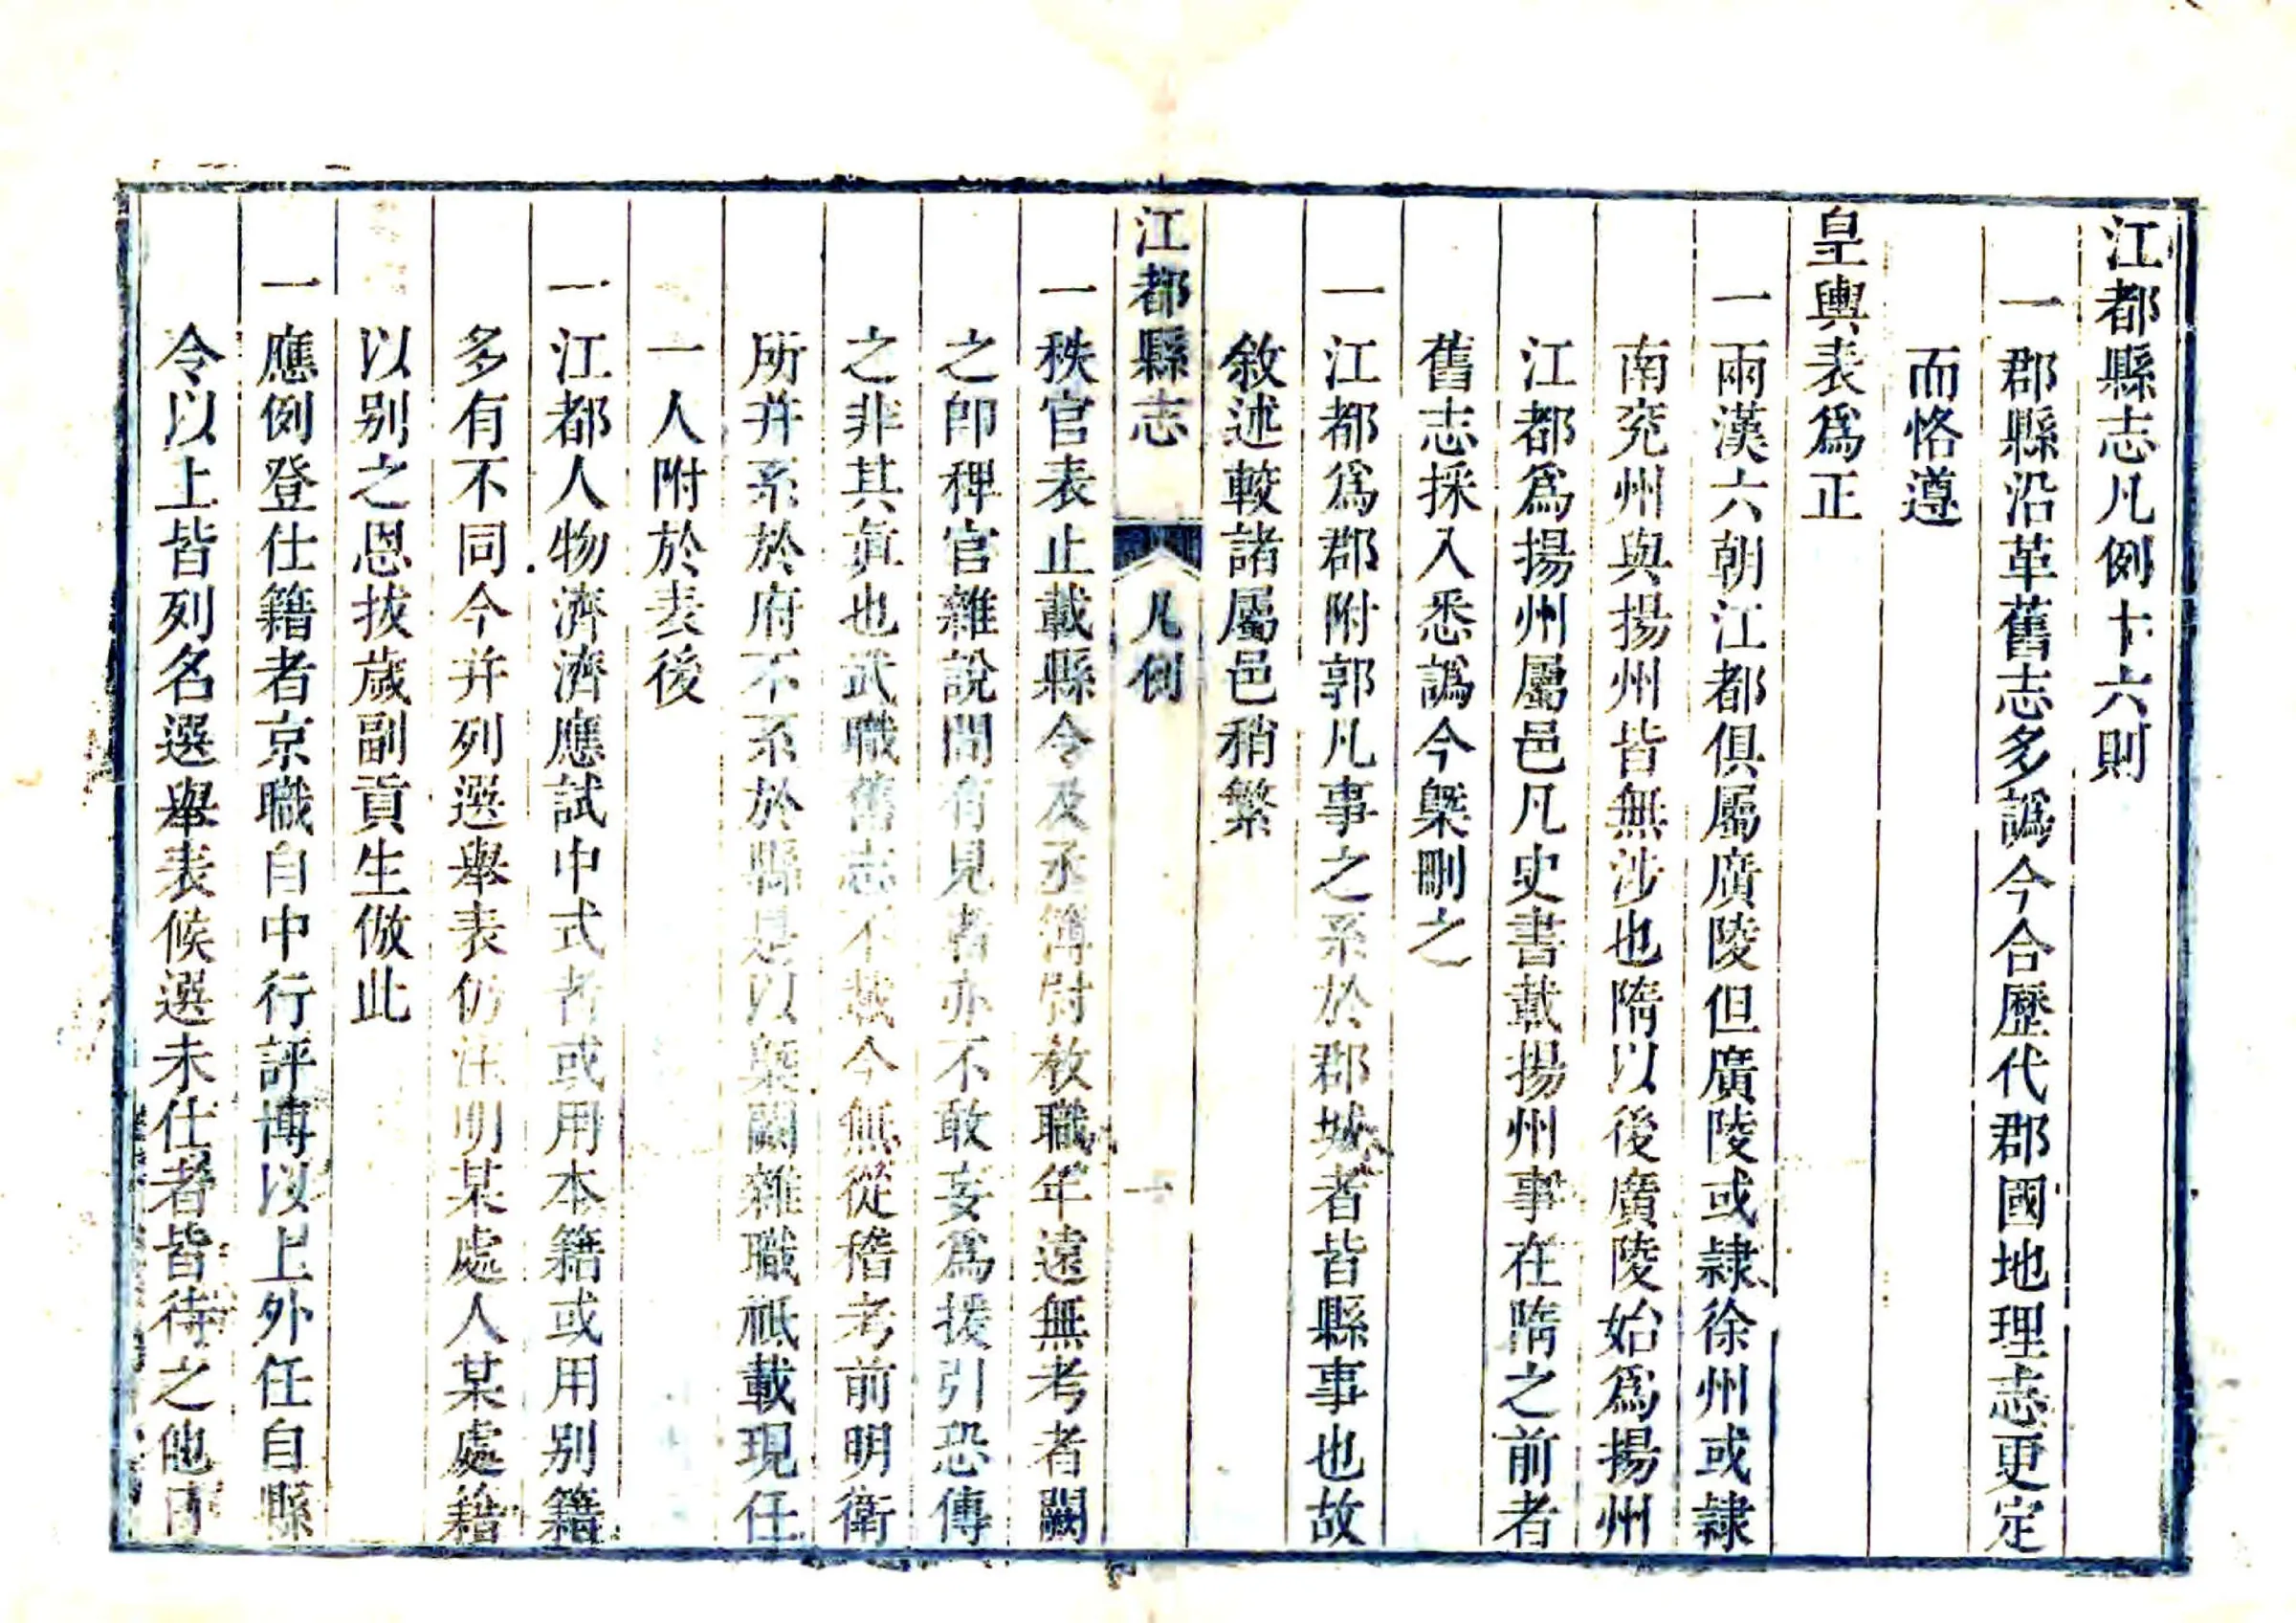 江都縣志凡例十六則
一郡縣沿革舊志多譌今合歷代郡國地理志更定
而恪遵
皇輿表爲正
一兩漢六朝江都俱屬廣陵但廣陵或隷徐州或隷
南兖州與揚州皆無涉也隋以後廣陵始爲揚州
江都爲揚州屬邑凡史書載揚州事在隋之前者
舊志採入悉譌今槩刪之
一江都爲郡附郭凡事之系於郡城者皆縣事也故
敘述較諸屬邑稍繁
江都縣志
凡例
一
一秩官表止載縣令及丞簿尉教職年遠無考者闕
之卽稗官雜說間有見者亦不敢妄爲援引恐傳
之非其眞也武職舊志不載今無從稽考前明衛
所并系於府不系於縣是以槩闕雜職祗載現任
一人附於表後
一江都人物濟濟應試中式者或用本籍或用别籍
多有不同今并列選舉表仍注明某處人某處籍
以别之恩拔歲副貢生倣此
一應例登仕籍者京職自中行評博以上外任自縣
令以上皆列名選舉表候選未仕者皆待之他日